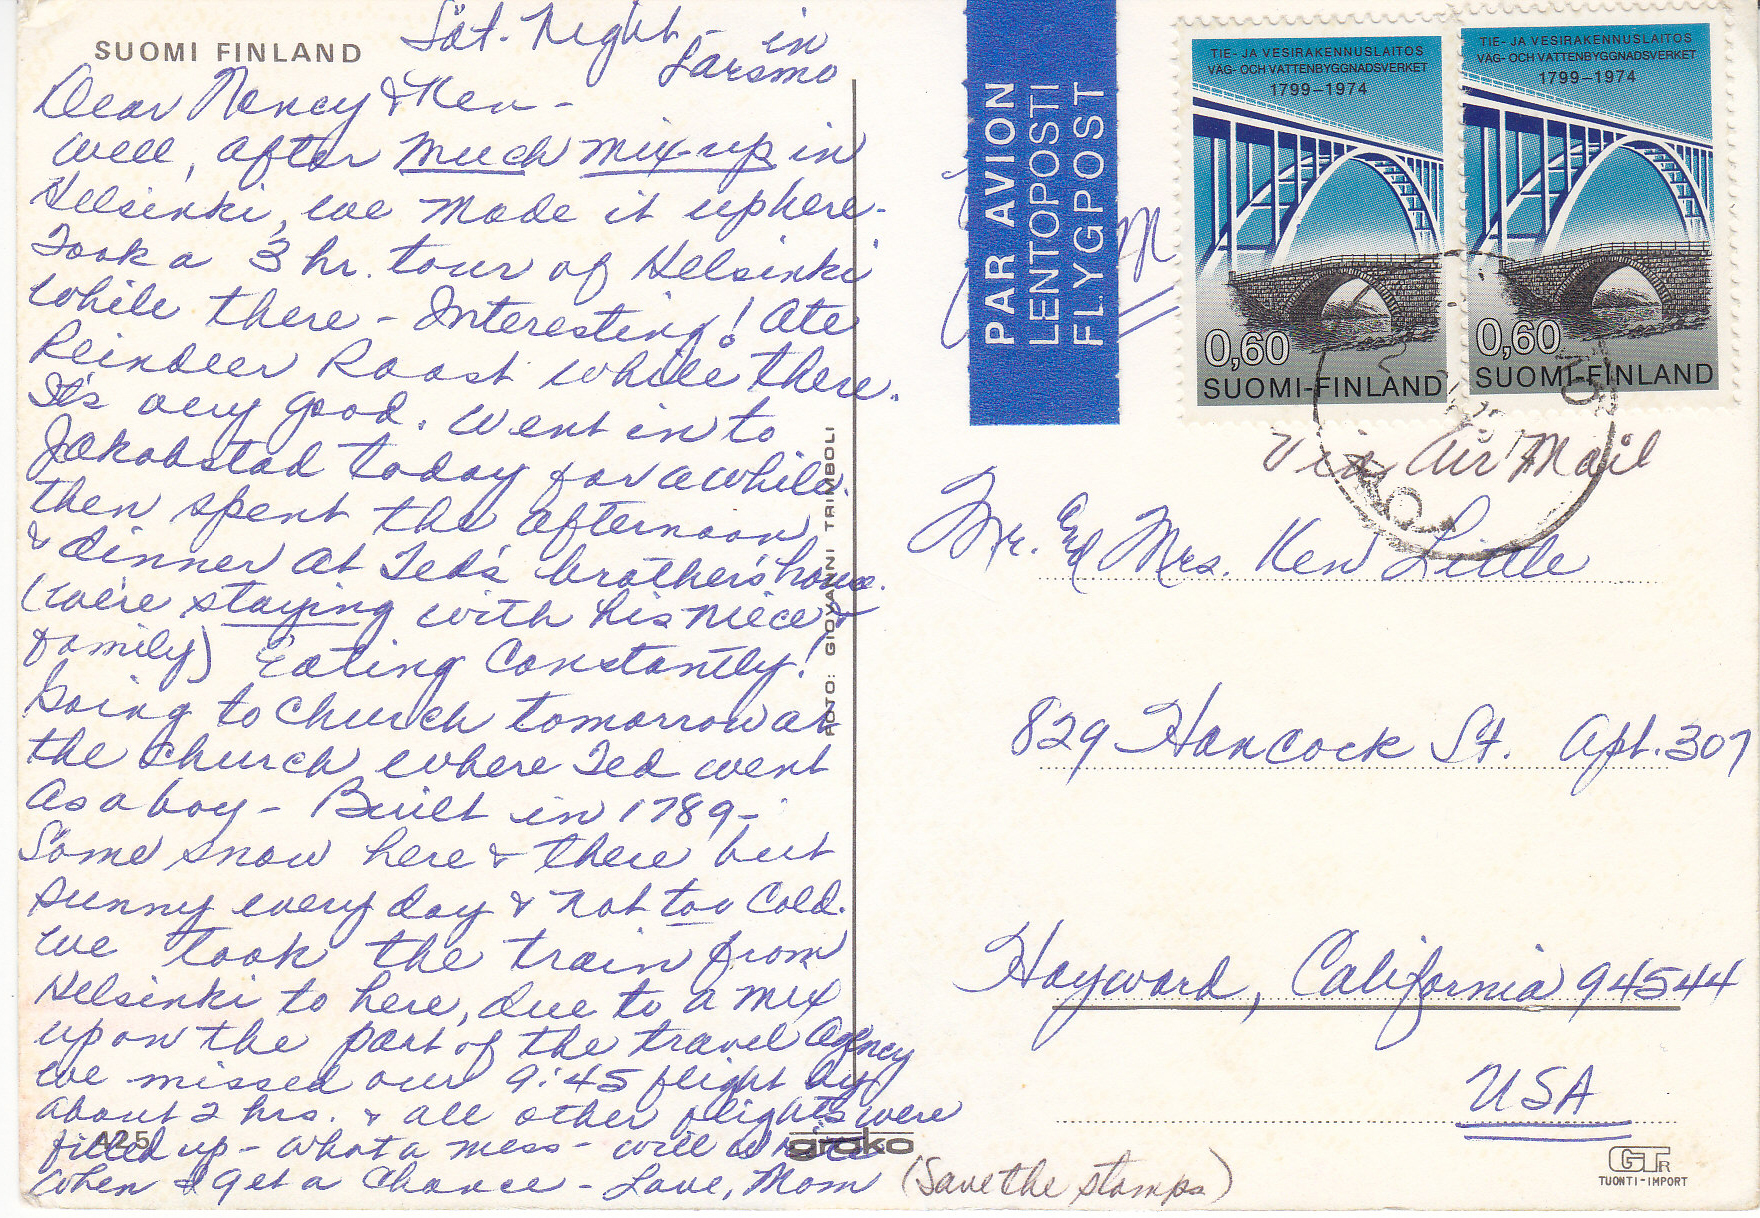 SUOMI FINLAND
Sat. Night - in
Larsmo
Dear Nancy & Ken -
Well, after much mix-up in
Helsinki, we made it up here -
Took a 3 hr. tour of Helsinki
while there - Interesting! Ate
Reindeer Roast while there.
It's very good. Went in to
Jakobstad today for awhile.
then spent the afternoon
& dinner at Ted's brother's house.
(we're staying with his niece &
family) Eating Constantly!
Going to Church tomorrow at
the church where Ted went
as a boy - Built in 1789 -
Some snow here & there but
sunny every day & not too cold.
We took the train from
Helsinki to here, due to a mix
up on the part of the travel agency
we missed our 9:45 flight by
about 2 hrs. & all other flights were
filled up - what a mess - will write
when I get a chance - Love, Mom
(Save the stamps)
A25
FOTO: GIOVANNI TRIMBOLI
groko
PAR AVION
LENTOPOSTI
FLYGPOST
TIE- JA VESIRAKENNUSLAITOS
VÄG- OCH VATTENBYGGNADSVERKET
1799-1974
0,60
SUOMI-FINLAND
TIE- JA VESIRAKENNUSLAITOS
VÄG- OCH VATTENBYGGNADSVERKET
1799-1974
0,60
SUOMI-FINLAND
Via Air Mail
Mr. and Mrs. Ken Little
829 Hancock St. Apt. 307
Hayward, California 94544
USA
GTR
TUONTI-IMPORT